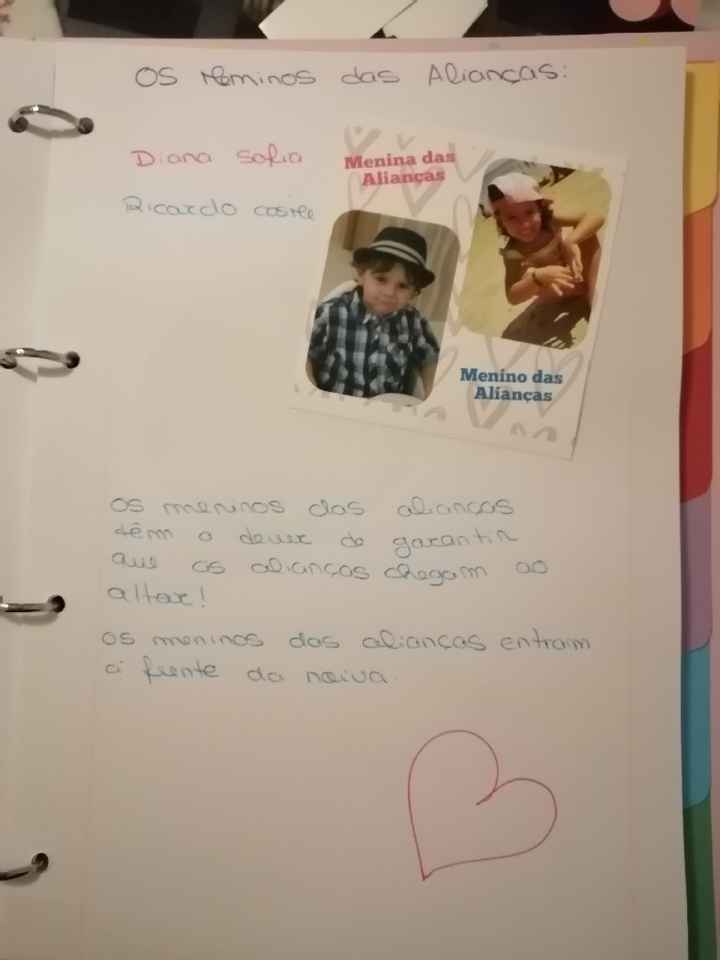 Os meninos das Alianças:
Diana Sofia
Ricardo
Menina das
Alianças
Menino das
Alianças
Os meninos das alianças
têm o dever de garantir
que as alianças chegam ao
altar!
Os meninos das alianças entram
à frente da noiva.